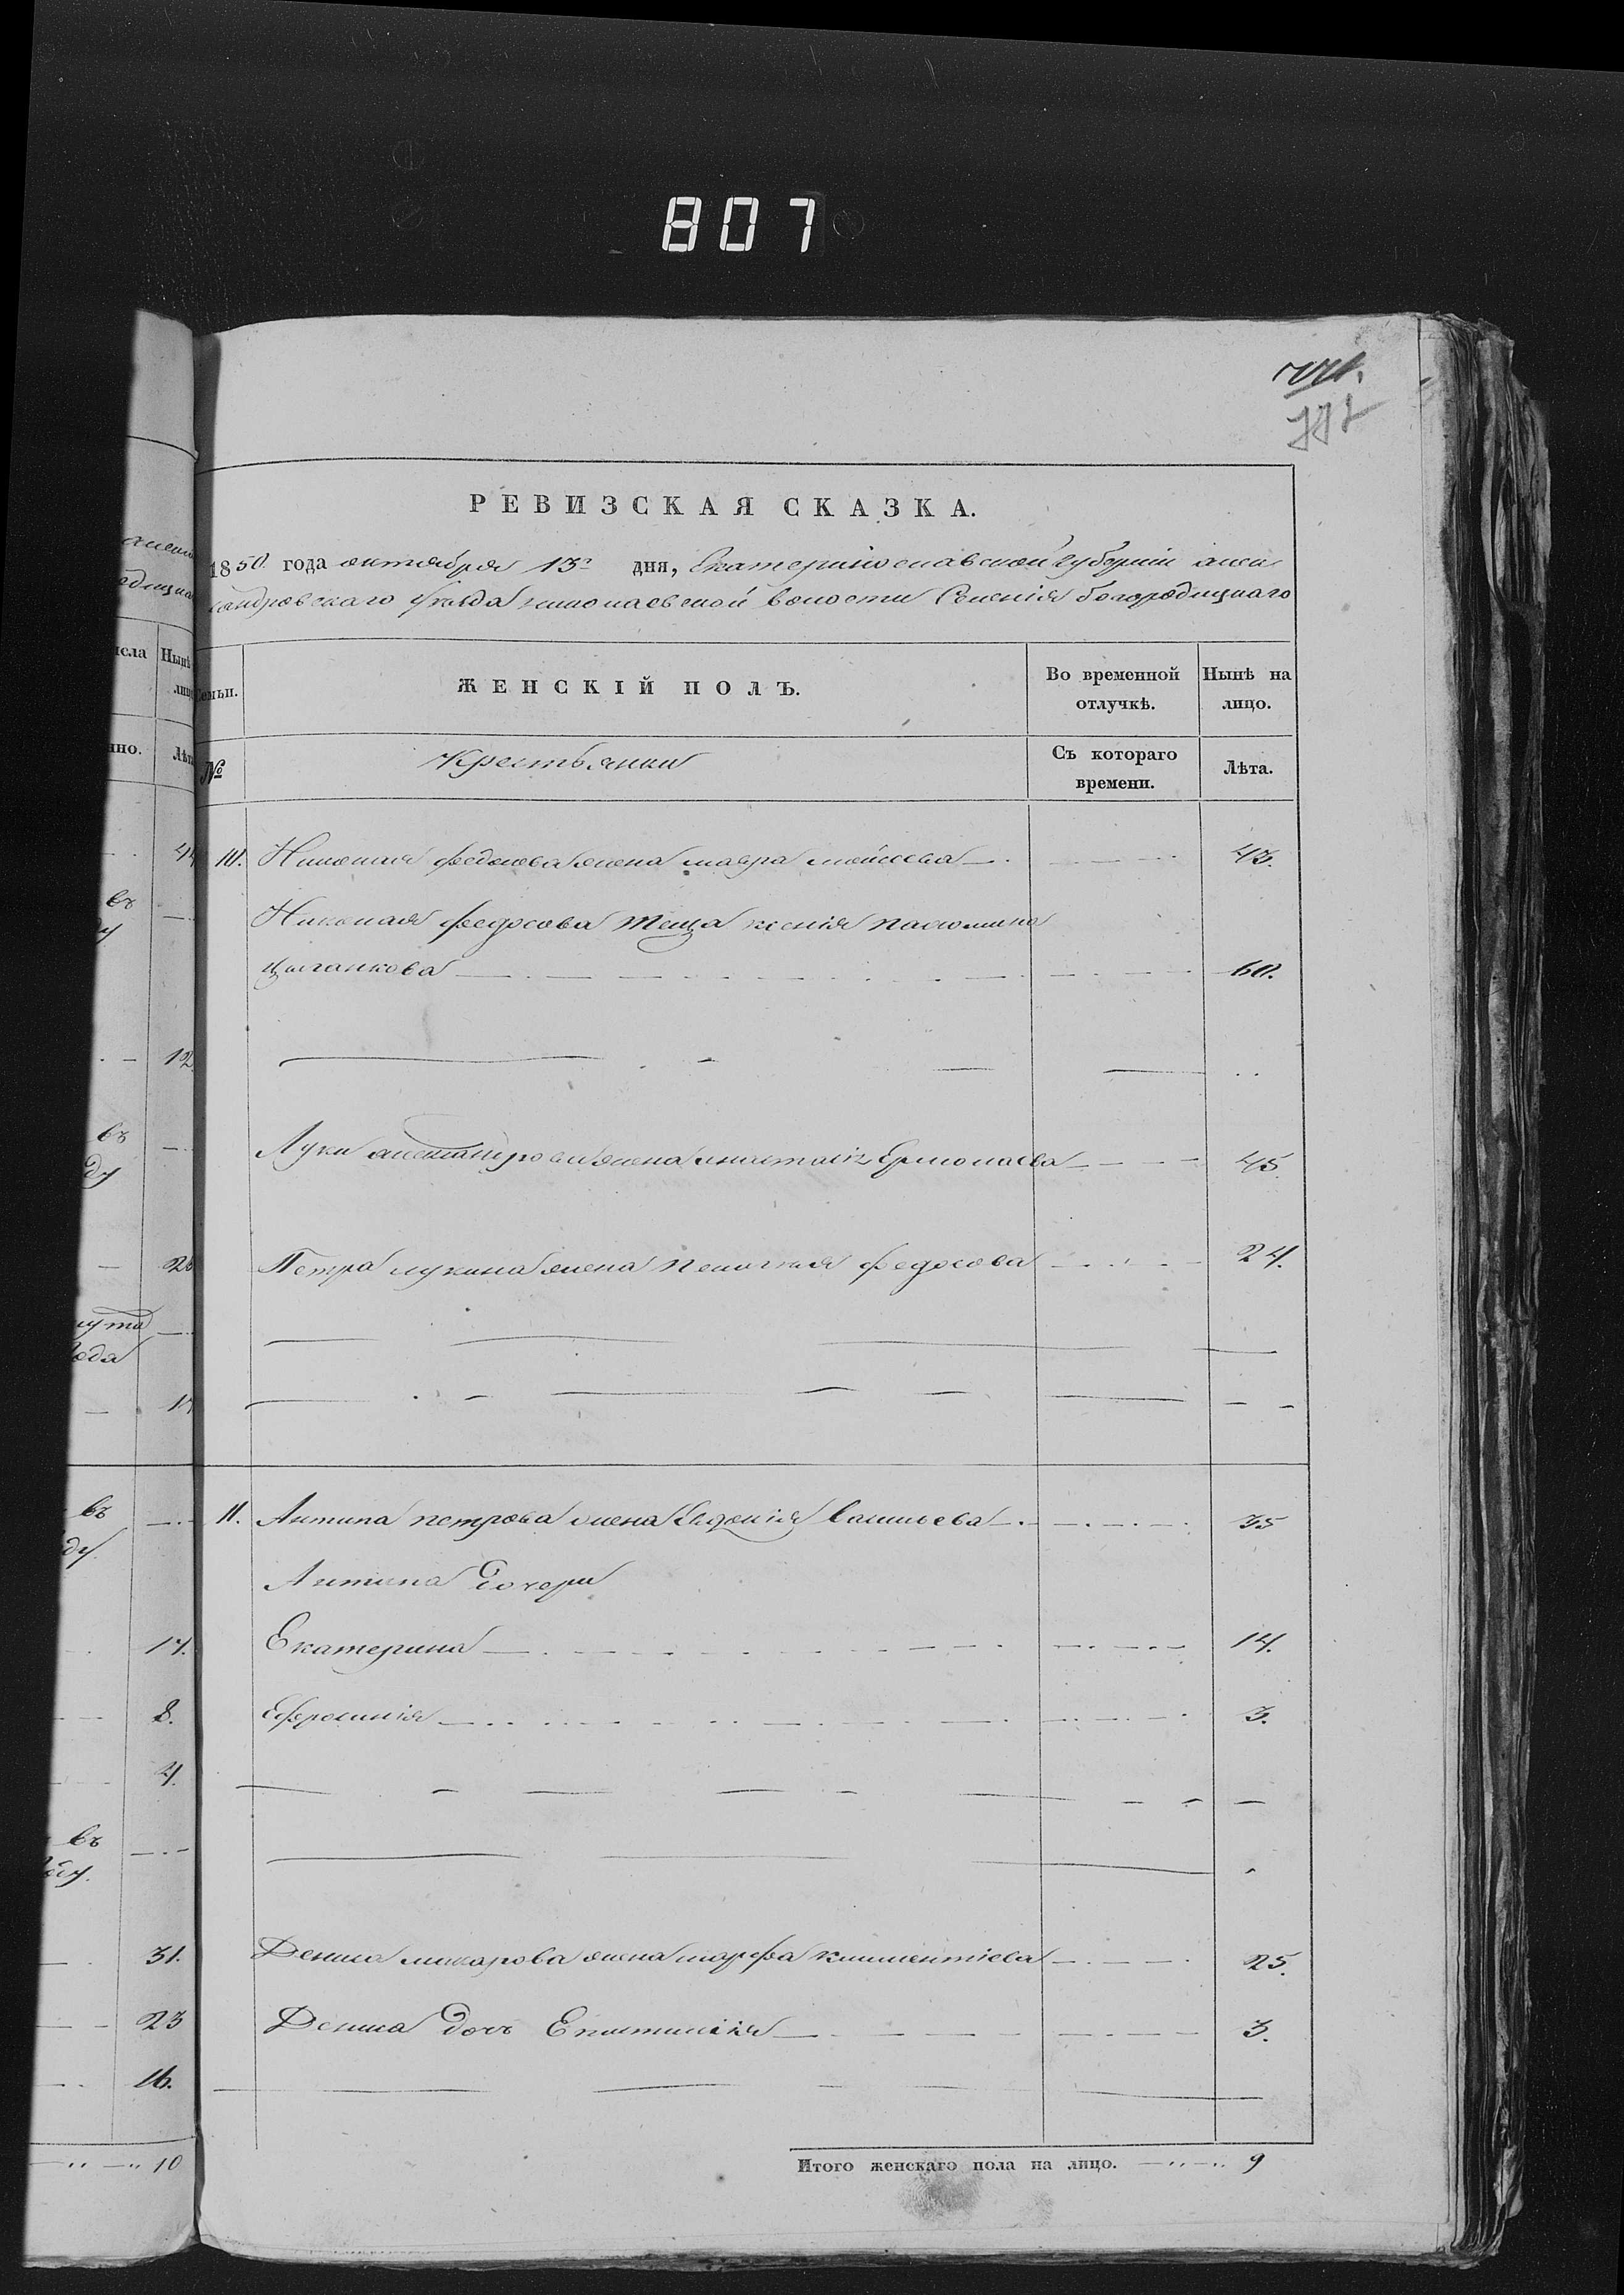 807
РЕВИЗСКАЯ СКАЗКА.
1850 года октября 13го дня, Екатеринославской губернии алек
сандровскаго уезда волости Селенія богородицкаго
Семьи. ЖЕНСКІЙ ПОЛЪ. Во временной отлучкѣ. Нынѣ на лицо.
№ Крестьянки Съ котораго времени. Лѣта.
10. Николая федосова жена мавра моисеева 43.
Николая федосова теща ксенія
цыганкова 60.
Луки александрова жена анастасія Ермолаева 45.
Петра лукина жена пелагея федосова 24.
11. Антипа петрова жена Евдокія Васильева 35
Антипа дочери
Екатерина 14.
Ефросинія 3.
Дениса макарова жена марфа климентіева 25.
Дениса дочь Епистимія 3.
Итого женскаго пола на лицо. 9
въ
12
въ
ду
въ
8.
4.
въ
31.
23
16.
10